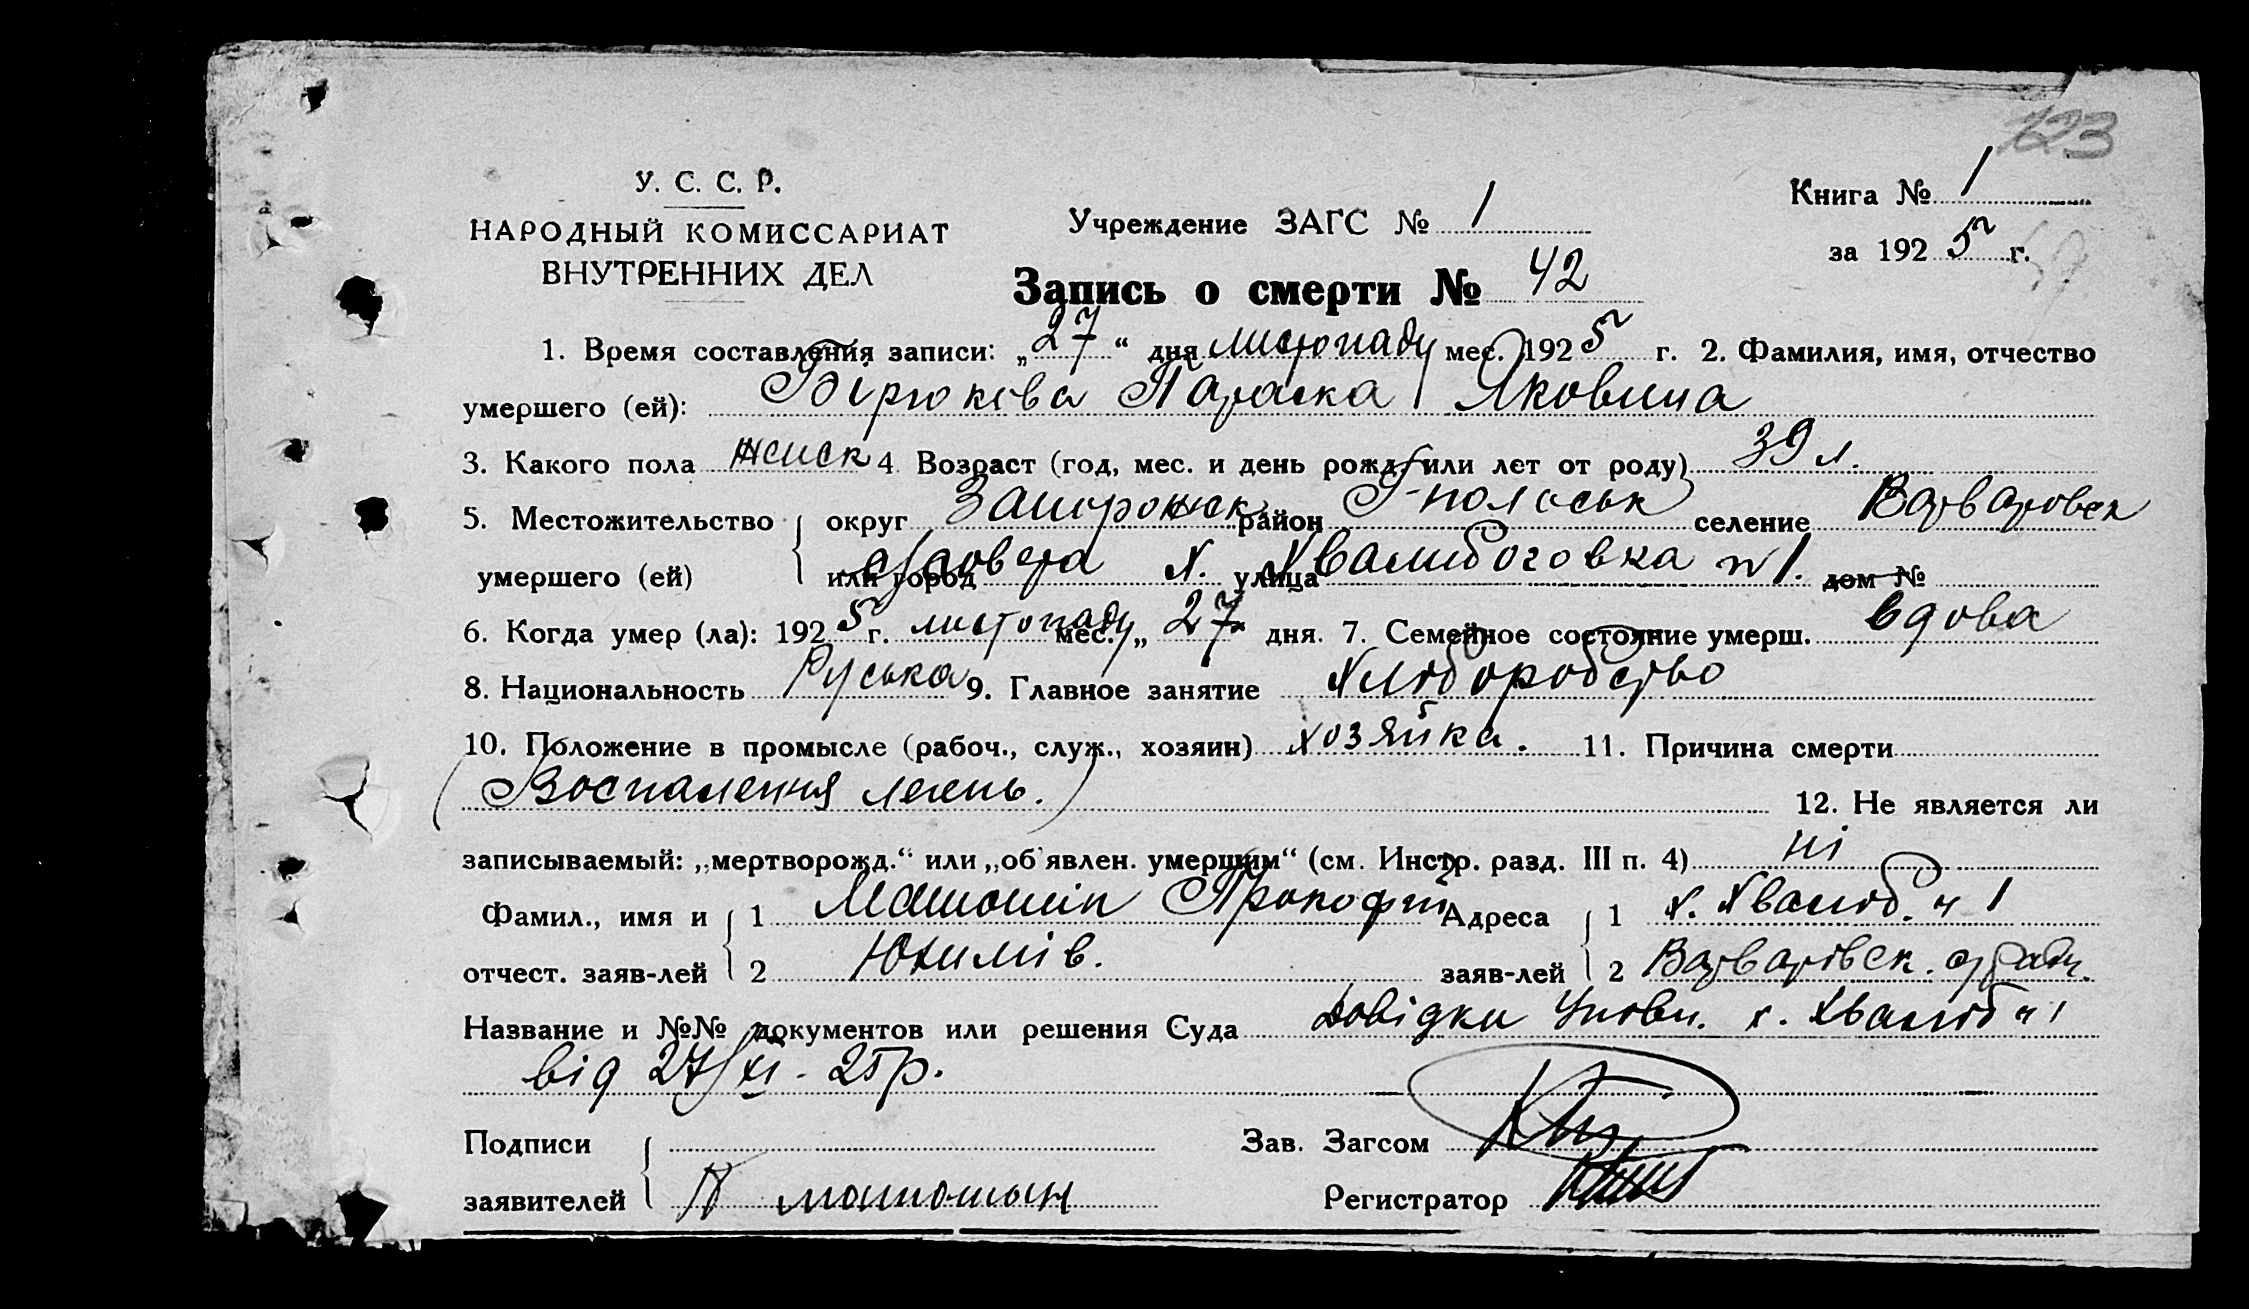 123
У. С. С. Р.
НАРОДНЫЙ КОМИССАРИАТ
ВНУТРЕННИХ ДЕЛ
Учреждение ЗАГС № 1
Книга № 1
за 1925 г.
Запись о смерти № 42
1. Время составления записи: „27“ дня листопаду мес. 1925 г. 2. Фамилия, имя, отчество
умершего (ей): Бірюкова Параска Яковина
3. Какого пола жиск 4. Возраст (год, мес. и день рожд. или лет от роду) 39 л.
5. Местожительство округ Запорожск район Г-польськ селение Варваровск
умершего (ей) или город улица Хвалибоговка № 1. дом №
6. Когда умер (ла): 1925 г. листопаду мес. „27 дня. 7. Семейное состояние умерш. вдова
8. Национальность Руська 9. Главное занятие хліборобство
10. Положение в промысле (рабоч., служ., хозяин) хозяйка. 11. Причина смерти
(Воспалення легень.) 12. Не является ли
записываемый: „мертворожд.“ или „об'явлен. умершим“ (см. Инстр. разд. III п. 4) ні
Фамил., имя и 1 Матюшін Прокофій Адреса 1 х. Хвалиб. № 1
отчест. заяв-лей 2 Юхимів. заяв-лей 2 Варварівск. с/рады.
Название и №№ документов или решения Суда Довідки Уповн. х. Хвалиб № 1
від 27/XI - 25 р.
Подписи Зав. Загсом
заявителей П матюшын Регистратор